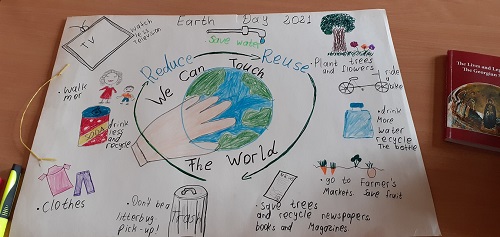 Earth Day 2021
TV
watch
less
Television
Save water
Reduce
Reuse
We Can Touch
The World
Plant trees
and flowers
ride
a
bike
walk
mor
drink
less and
recycle
drink
More
water
recycle
The bottle
clothes
Don't be a
litterbug
Pick-up!
Trash
Save trees
and recycle newspapers
books and Magazines
go to Farmer's
Markets. Save fruit
The Lives and
The Georgian